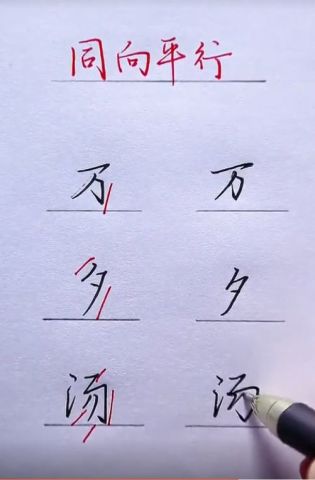 同向平行
万 万
夕 夕
汤 汤